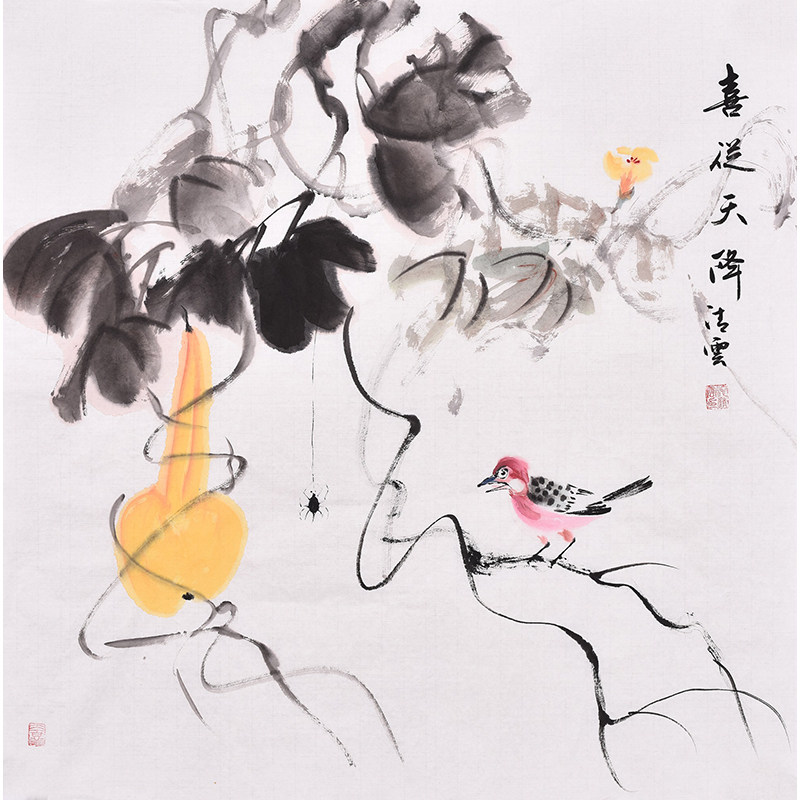 喜從天降
清雲